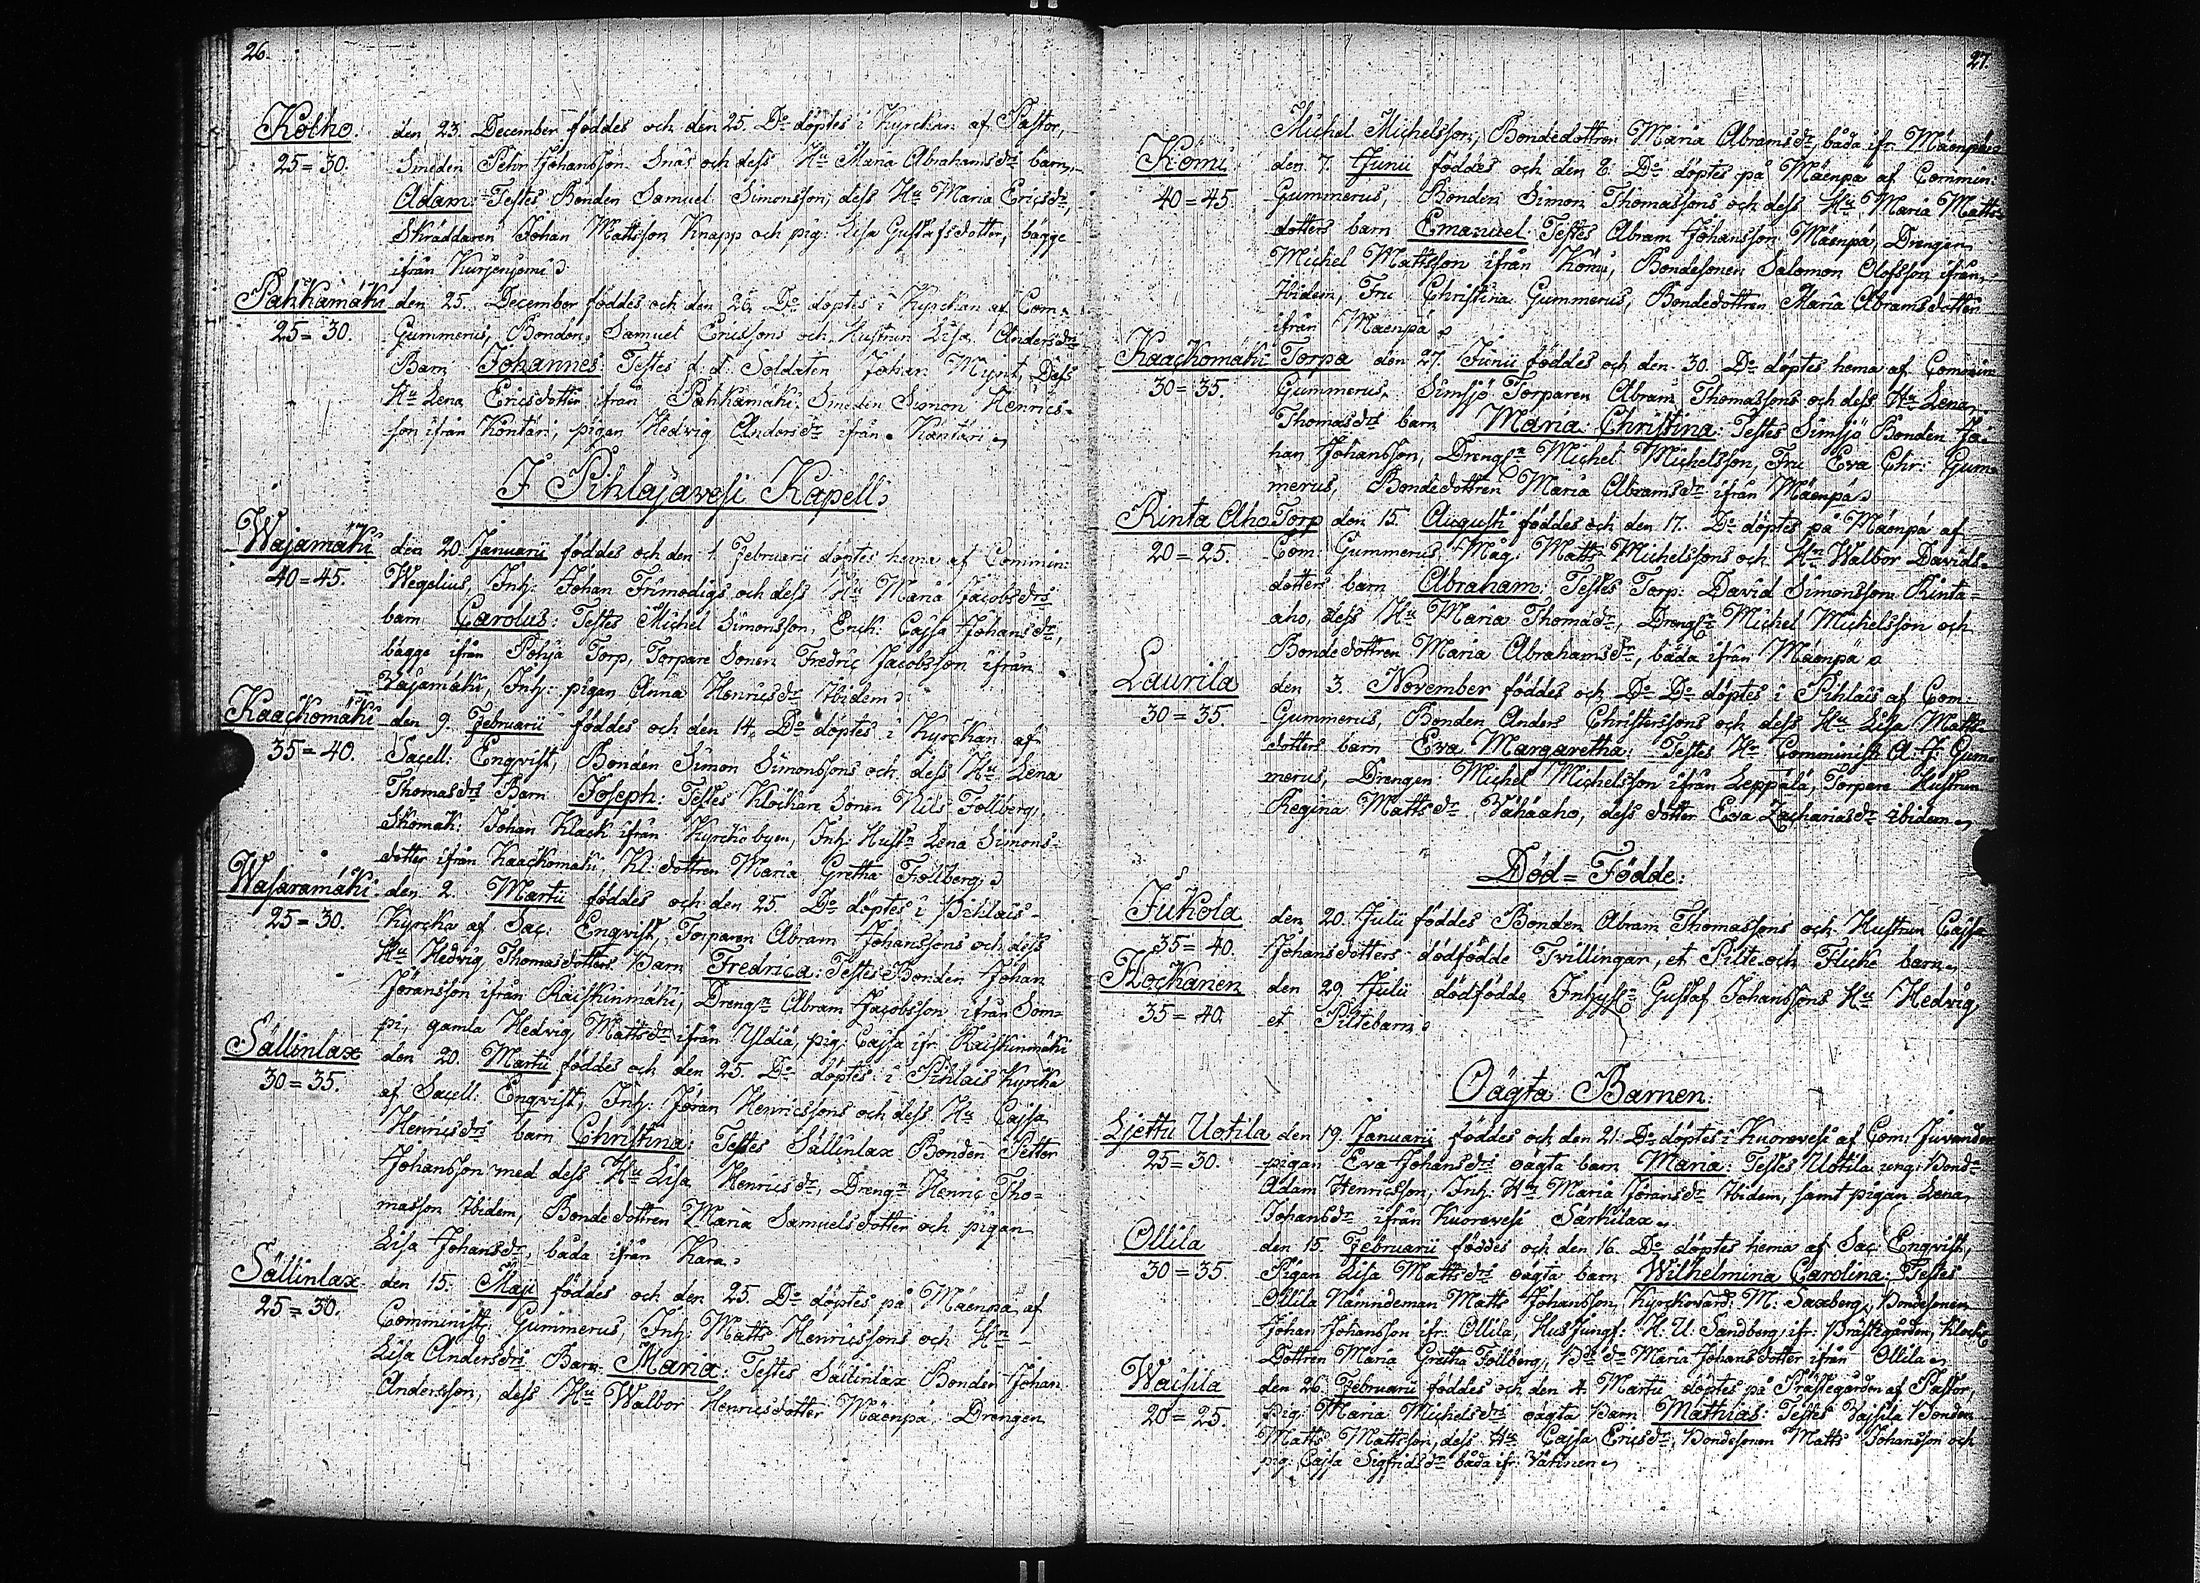 26.
Kolho. den 23. December föddes och den 25. Do döptes i Kyrckan af Pastor,
25=30. Smeden Pehr Johansson Snäs och dess Hu Maria Abrahamsdrs barn,
Adam: Testes Bonden Samuel Simonsson, dess Hu Maria Ericsdr,
Skräddaren Johan Mattsson Knapp och pig: Lisa Gustafsdotter, bägge
ifrån Kurjenjemi.
Pahkamäki den 25. December föddes och den 26. Do döptes i Kyrckan af Com:
25=30. Gummerus, Bonden Samuel Ericssons och Hustrun Lisa Andersdrs
Barn Johannes: Testes f. d. Soldaten Johan Mynt, Dess
Hu Lena Ericsdotter ifrån Pahkamäki. Smeden Simon Henrics-
son ifrån Kontäri, pigan Hedvig Andersdr ifrån Kontäri
I Pihlajavesi Kapell.
Wajamäki den 20. Januarii föddes och den 1. Februarii döptes hema af Commin:
40=45. Wegelius, Inh: Johan Frimodigs och dess Hu Maria Jacobsdrs
barn Carolus: Testes Michel Simonsson, Enck: Cajsa Johansdr,
bägge ifrån Pohja Torp, Torpare Sonen Fredric Jacobsson ifrån
Vajamäki, Inh: pigan Anna Henricsdr Ibidem.
Kaackomäki den 9. Februarii föddes och den 14. Do döptes i Kyrckan af
35=40. Sacell: Enqvist, Bonden Simon Simonssons och dess Hu Lena
Thomasdrs Barn Joseph: Testes Klockare Sonen Nils Follberg,
Skomak: Johan Klack ifrån Kyrcko byen, Inh: Hustr Lena Simons-
dotter ifrån Kaackomäki, Kl: dottren Maria Gretha Follberg.
Wasaramäki den 2. Martii föddes och den 25. Do döptes i Pihlais
25=30. Kyrcka af Sac: Enqvist, Torparen Abram Johanssons och dess
Hu Hedvig Thomasdotters Barn Fredrica: Testes Bonden Johan
Jöransson ifrån Raiskinmäki, Drengn Abram Jacobsson ifrån Som-
pi, gamla Hedvig Mattsdr ifrån Yldiä, pig: Cajsa ifr: Raiskinmäki
Sällinlax den 20. Martii föddes och den 25. Do döptes i Pihlais Kyrcka
30=35. af Sacell: Enqvist, Inh: Jöran Henricssons och dess Hu Cajsa
Henricsdrs barn Christina: Testes Sällinlax Bonden Petter
Johansson med dess Hu Lisa Henricsdr, Drengn Henric Tho-
masson Ibidem, Bonde dottren Maria Samuelsdotter och pigan
Lisa Johansdr, båda ifrån Kara.
Sällinlax den 15. Maji föddes och den 25. Do döptes på Mäenpä af
25=30. Comminist: Gummerus, Inh: Matts Henricssons och Hu
Lisa Andersdrs Barn Maria: Testes Sällinlax Bonden Johan
Andersson, dess Hu Walbor Henricsdotter Mäenpä. Drengen
27.
Michel Michelsson, Bondedottren Maria Abramsdr, båda ifr: Mäenpää
Kömi den 7. Junii föddes och den 8. Do döptes på Mäenpä af Commin:
40=45 Gummerus, Bonden Simon Thomassons och dess Hu Maria Matts-
dotters barn Emanuel: Testes Abram Johansson Mäenpä, Drengen
Michel Mattsson ifrån Kömi, Bondesonen Salomon Olofsson ifrån
Ibidem, Fru Christina Gummerus, Bondedottren Maria Abramsdotter
ifrån Mäenpä.
Kaackomäki Torpa den 27. Junii föddes och den 30. Do döptes hema af Commin:
30=35. Gummerus, Simsjö Torparen Abram Thomassons och dess Hu Lena
Thomasdrs barn Maria Christina: Testes Simsjö Bonden Jo-
han Johansson, Drengn Michel Michelsson, Fru Eva Chr: Gum-
merus, Bondedottren Maria Abramsdr ifrån Mäenpä.
Rinta Aho Torp den 15. Augusti föddes och den 17. Do döptes på Mäenpä af
20=25. Com: Gummerus Måg: Matts Michelssons och Hu Walbor Davids-
dotters barn Abraham: Testes Torp: David Simonsson Rinta-
aho, dess Hu Maria Thomadr, Drengn Michel Michelsson och
Bondedottren Maria Abrahamsdr, båda ifrån Mäenpä.
Laurila den 3. November föddes och Do Do döptes i Pihlais af Com:
30=35. Gummerus, Bonden Anders Christerssons och dess Hu Lisa Matts-
dotters barn Eva Margaretha: Testes Hr Comminist: A. J. Gum-
merus, Drengen Michel Michelsson ifrån Leppälä, Torpare Hustrun
Regina Mattsdr Vähäaho, dess dotter Eva Zachariasdr ibidem
Död=Födde:
Jukola den 20. Julii föddes Bonden Abram Thomassons och Hustrun Cajsa
35=40. Johansdotters dödfödde Tvillingar, et Pilte och Flicke barn
Flockanen den 29. Julii dödfödde Inhyss: Gustaf Johanssons Hu Hedvig
35=40. et Piltebarn.
Oägta Barnen:
Ljettu Uotila den 19. Januarii föddes och den 21. Do döptes i Kuorevesi af Com: Juvander
25=30. pigan Eva Johansdrs oägta barn Maria: Testes Uotila ung: Bondn
Adam Henricsson, Inh: Hu Maria Jöransdr Ibidem, samt pigan Lena
Johansdr ifrån Kuorevesi Särkilax.
Ollila den 15. Februarii föddes och den 16. Do döptes hema af Sac: Enqvist,
30=35. Pigan Lisa Mattsdrs oägta barn Wilhelmina Carolina: Testes
Ollila Nämndeman Matts Johansson, Kyrckovärd: M: Saxberg, Bondesonen
Johan Johansson ifr: Ollila, HusJungf: H: U: Sandberg, ifr: Prästegården, Klock:
Dottren Maria Gretha Follberg, Bde dr Maria Johansdotter ifrån Ollila
Waisila den 26. Februarii föddes och den 4. Martii döptes på Prästegården af Pastor,
20=25. pig: Maria Michelsdrs oägta barn Mathias: Testes Vajsila Bonden
Matts Mattsson, dess Hu Cajsa Ericsdr, Bondesonen Matts Johansson och
pig: Cajsa Sigfridsdr båda ifr: Vätinen